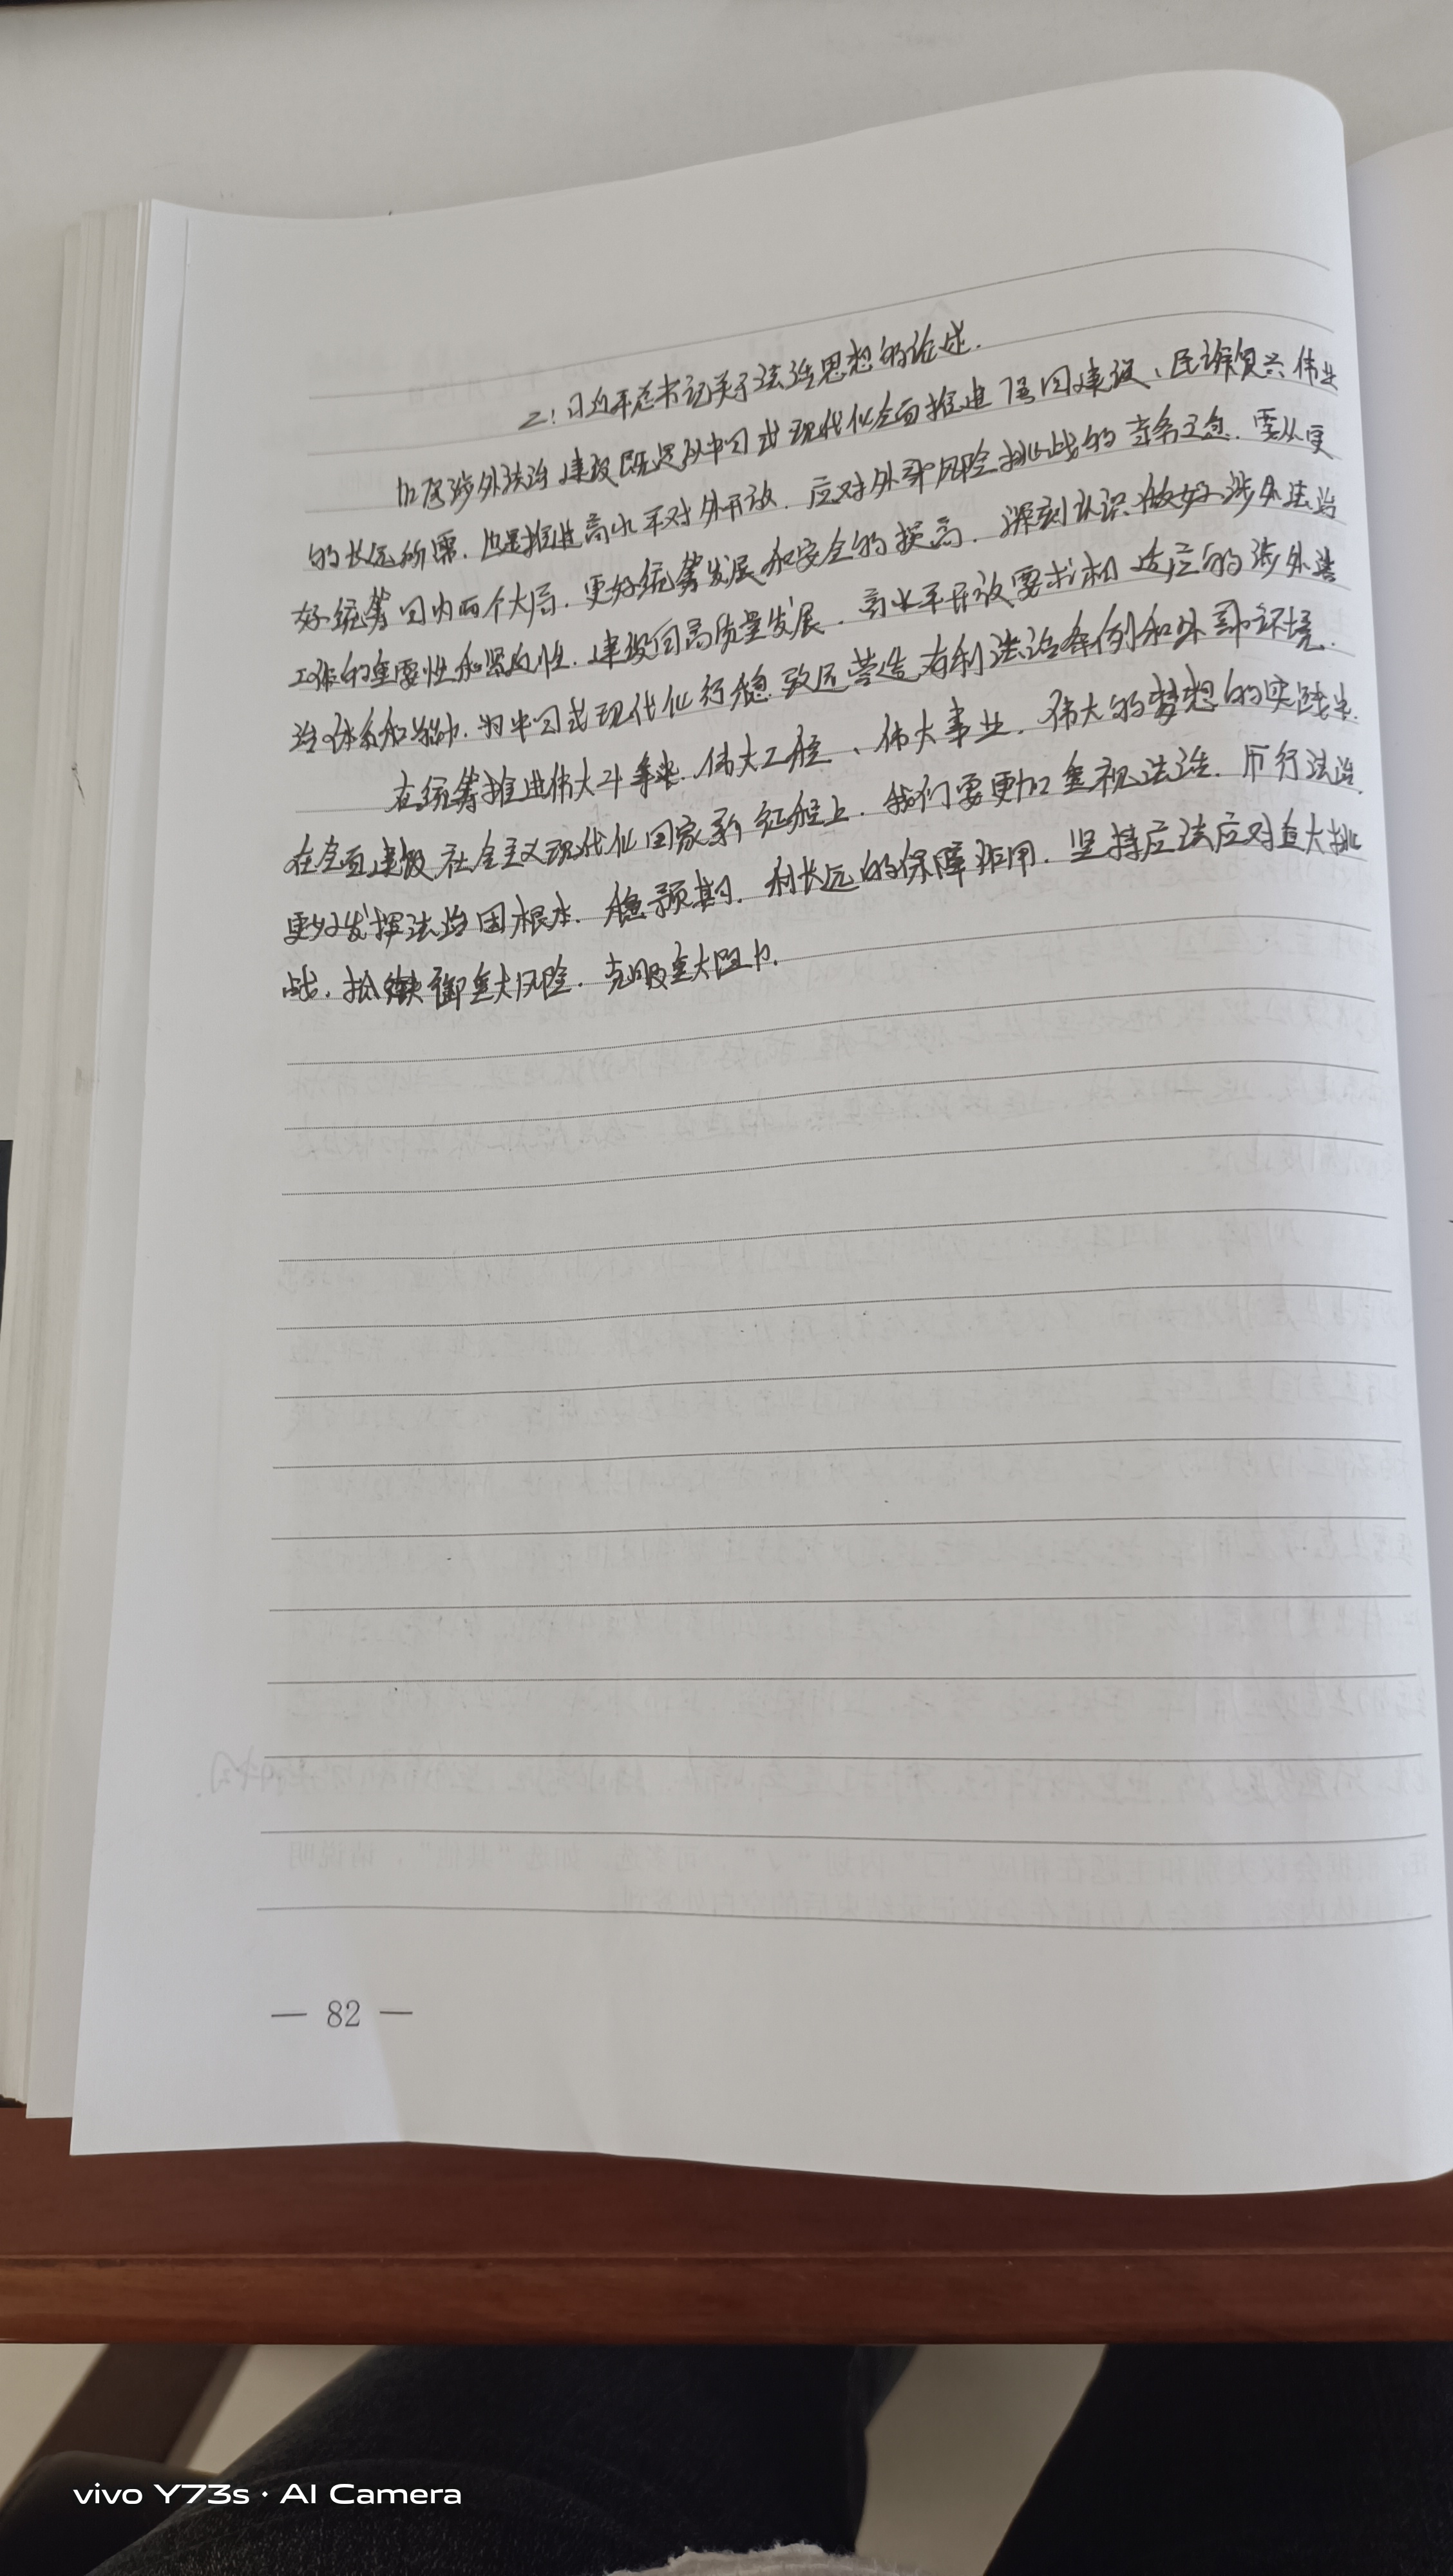 二：习近平总书记关于法治思想的论述.
加强涉外法治建设既是以中国式现代化全面推进强国建设、民族复兴伟业
的长远所需.也是推进高水平对外开放.应对外部风险挑战的当务之急.要从更
好统筹国内两个大局.更好统筹发展和安全的提高.深刻认识做好涉外法治
工作的重要性和紧迫性.建设同高质量发展.高水平开放要求相适应的涉外法
治体系和能力.为中国式现代化行稳致远营造有利法治条例和外部环境.
在统筹推进伟大斗争.伟大工程、伟大事业.伟大的梦想的实践中.
在全面建设社会主义现代化国家新征程上.我们要更加重视法治.厉行法治.
更好发挥法治固根本.稳预期.利长远的保障作用.坚持应法应对重大挑
战.抵御重大风险.克服重大阻力.
— 82 —
vivo Y73s · AI Camera